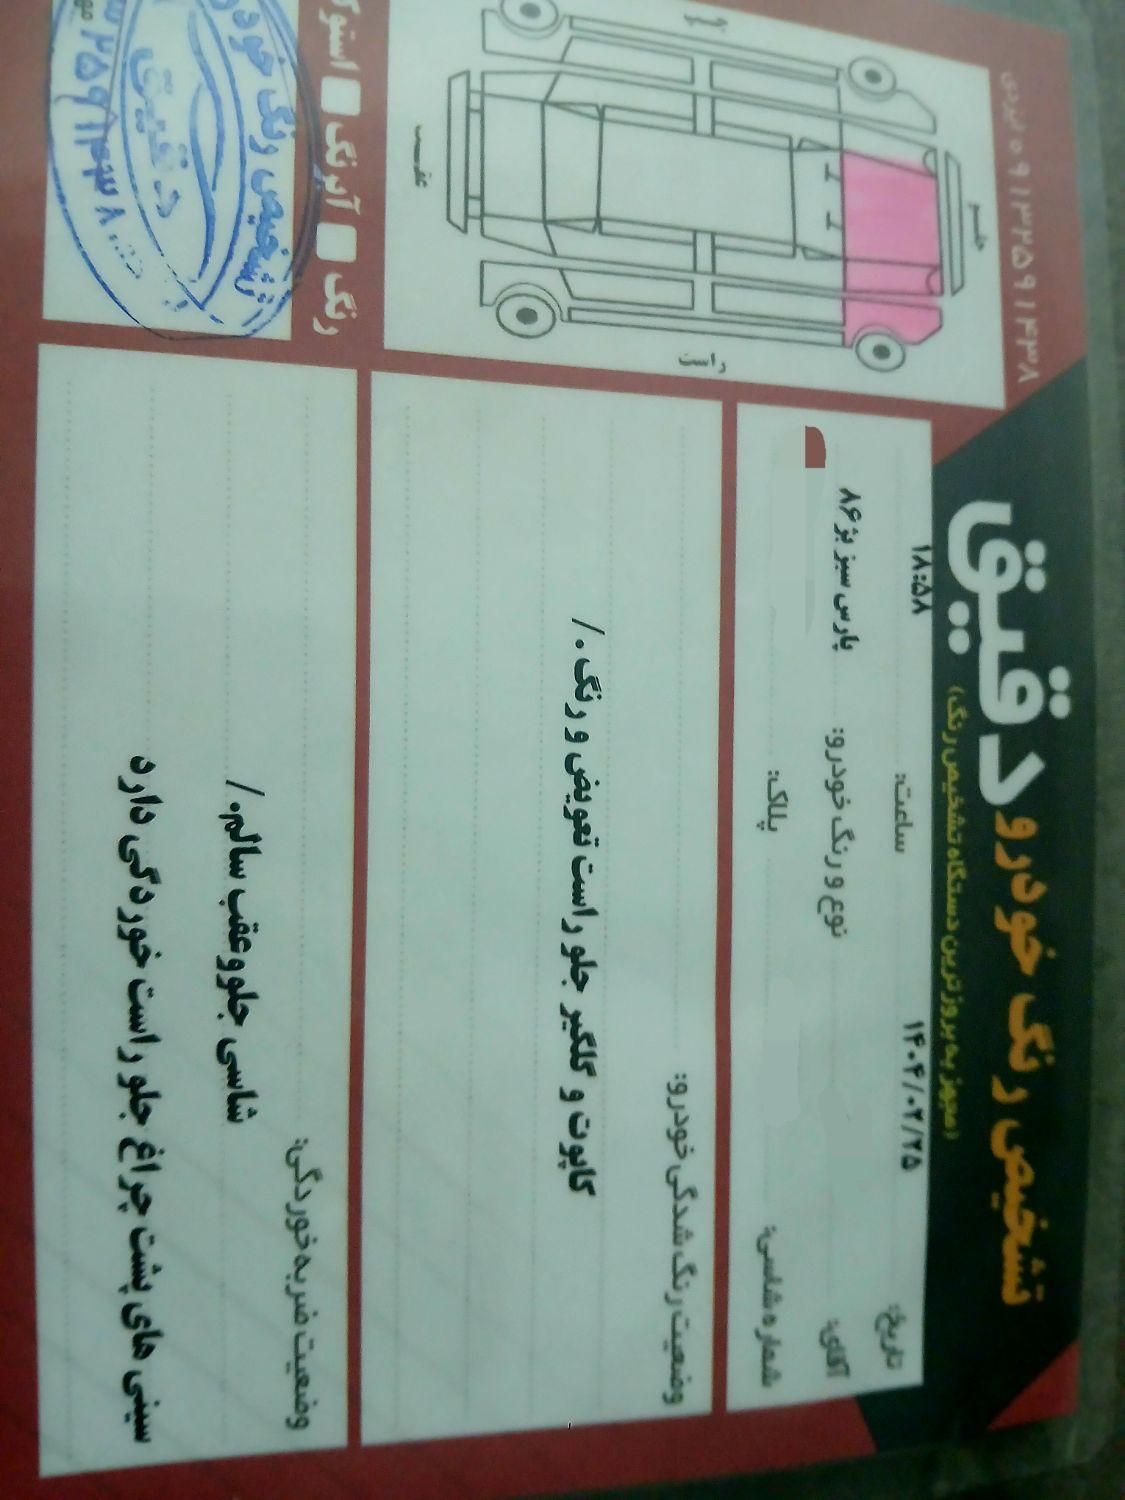 تشخیص رنگ خودرو دقیق
(مجهز به بروزترین دستگاه تشخیص رنگ)
تاریخ: ۱۴۰۴/۰۲/۲۵ ساعت: ۱۸:۵۸
آقای: نوع و رنگ خودرو: پارس سبز بژ ۸۶
شماره شاسی: پلاک:
۰۹۱۳۲۵۹۱۴۳۸
جلو
راست
چپ
عقب
وضعیت رنگ شدگی خودرو:
کاپوت و گلگیر جلو راست تعویض و رنگ ./
رنگ
آبرنگ
استوک
وضعیت ضربه خوردگی:
شاسی جلو و عقب سالم./
سینی های پشت چراغ جلو راست خوردگی دارد
تشخیص رنگ خودرو
دقیق